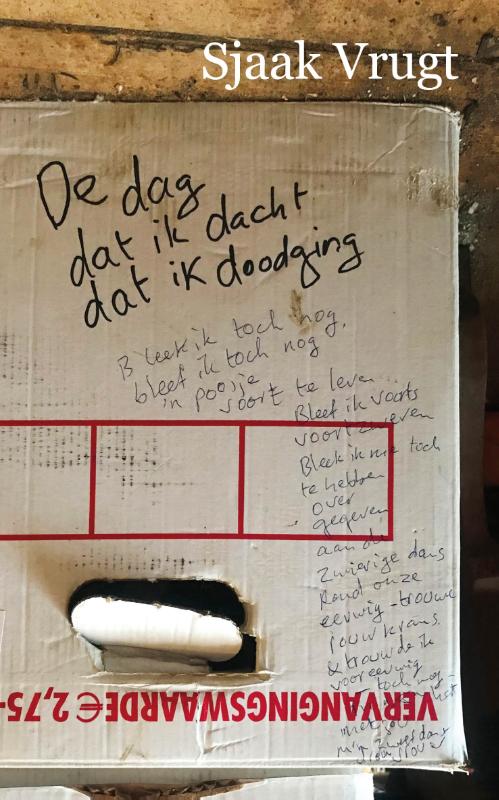 Sjaak Vrugt
De dag
dat ik dacht
dat ik doodging
Bleek ik toch nog,
bleef ik toch nog
'n poosje
voort te leven
Bleef ik voorts
voort zweven
Bleek ik me toch
te hebben
over
gegeven
aan de
Zwierige dans
Rond onze
eeuwig-trouwe
rouwkrans
& trouwde ik
voor eeuwig
toch nog
VERVANGINGSWAARDE € 2,75